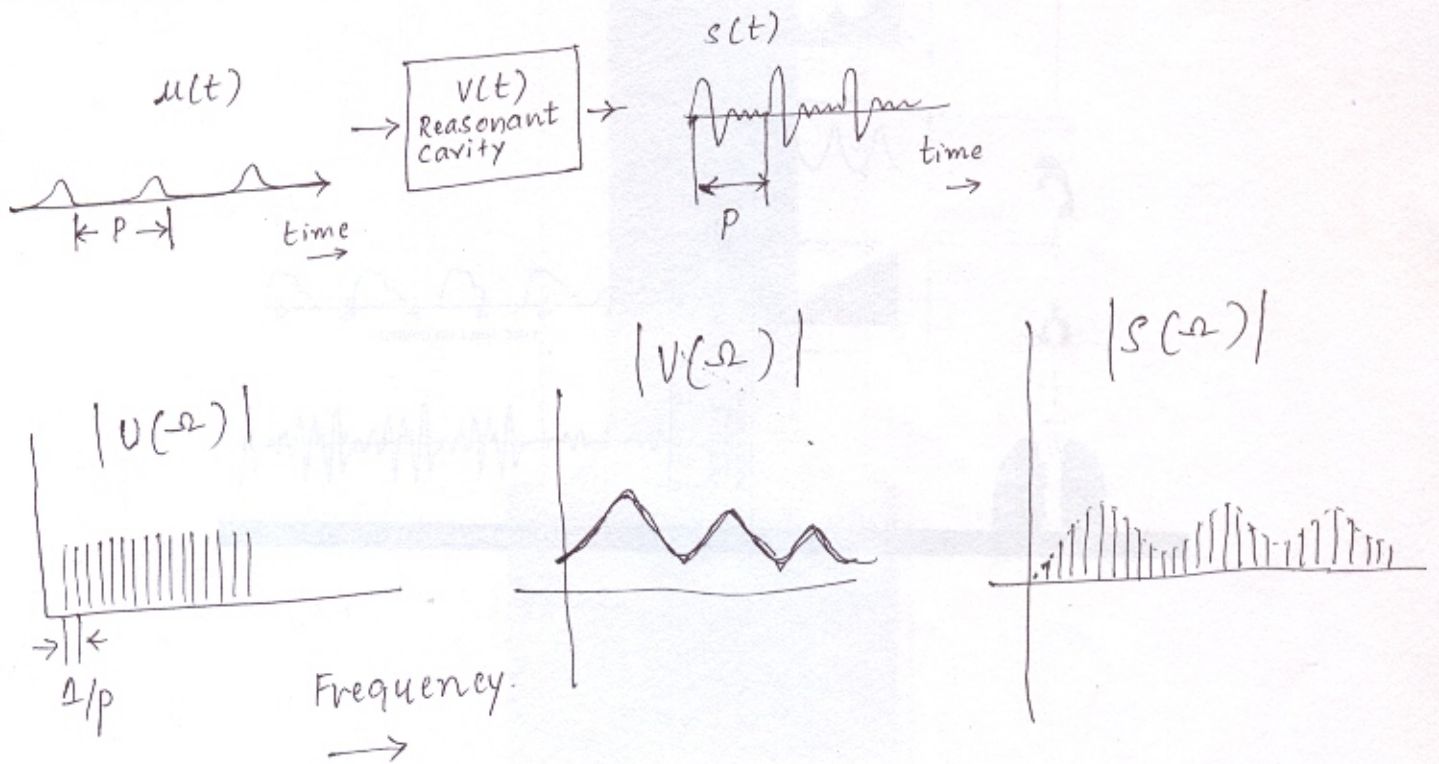 s(t)
u(t)
V(t)
Reasonant
Cavity
time
P
P
time
|V(Ω)|
|S(Ω)|
|U(Ω)|
1/p
Frequency.